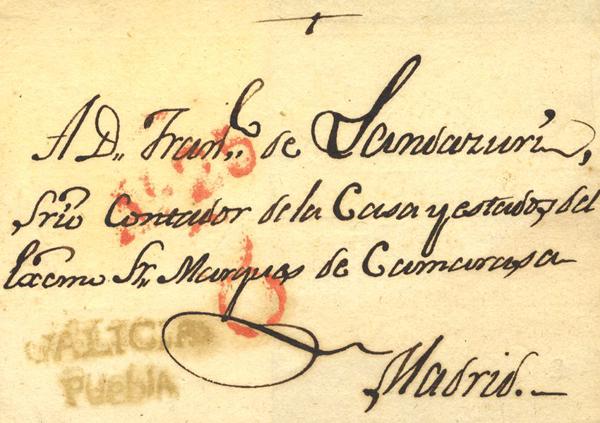 A D.n Fran.co de Landazuri,
srio Contador de la Casa y estados del
Excmo Sr. Marques de Camarasa
GALICIA
Puebla
Madrid.